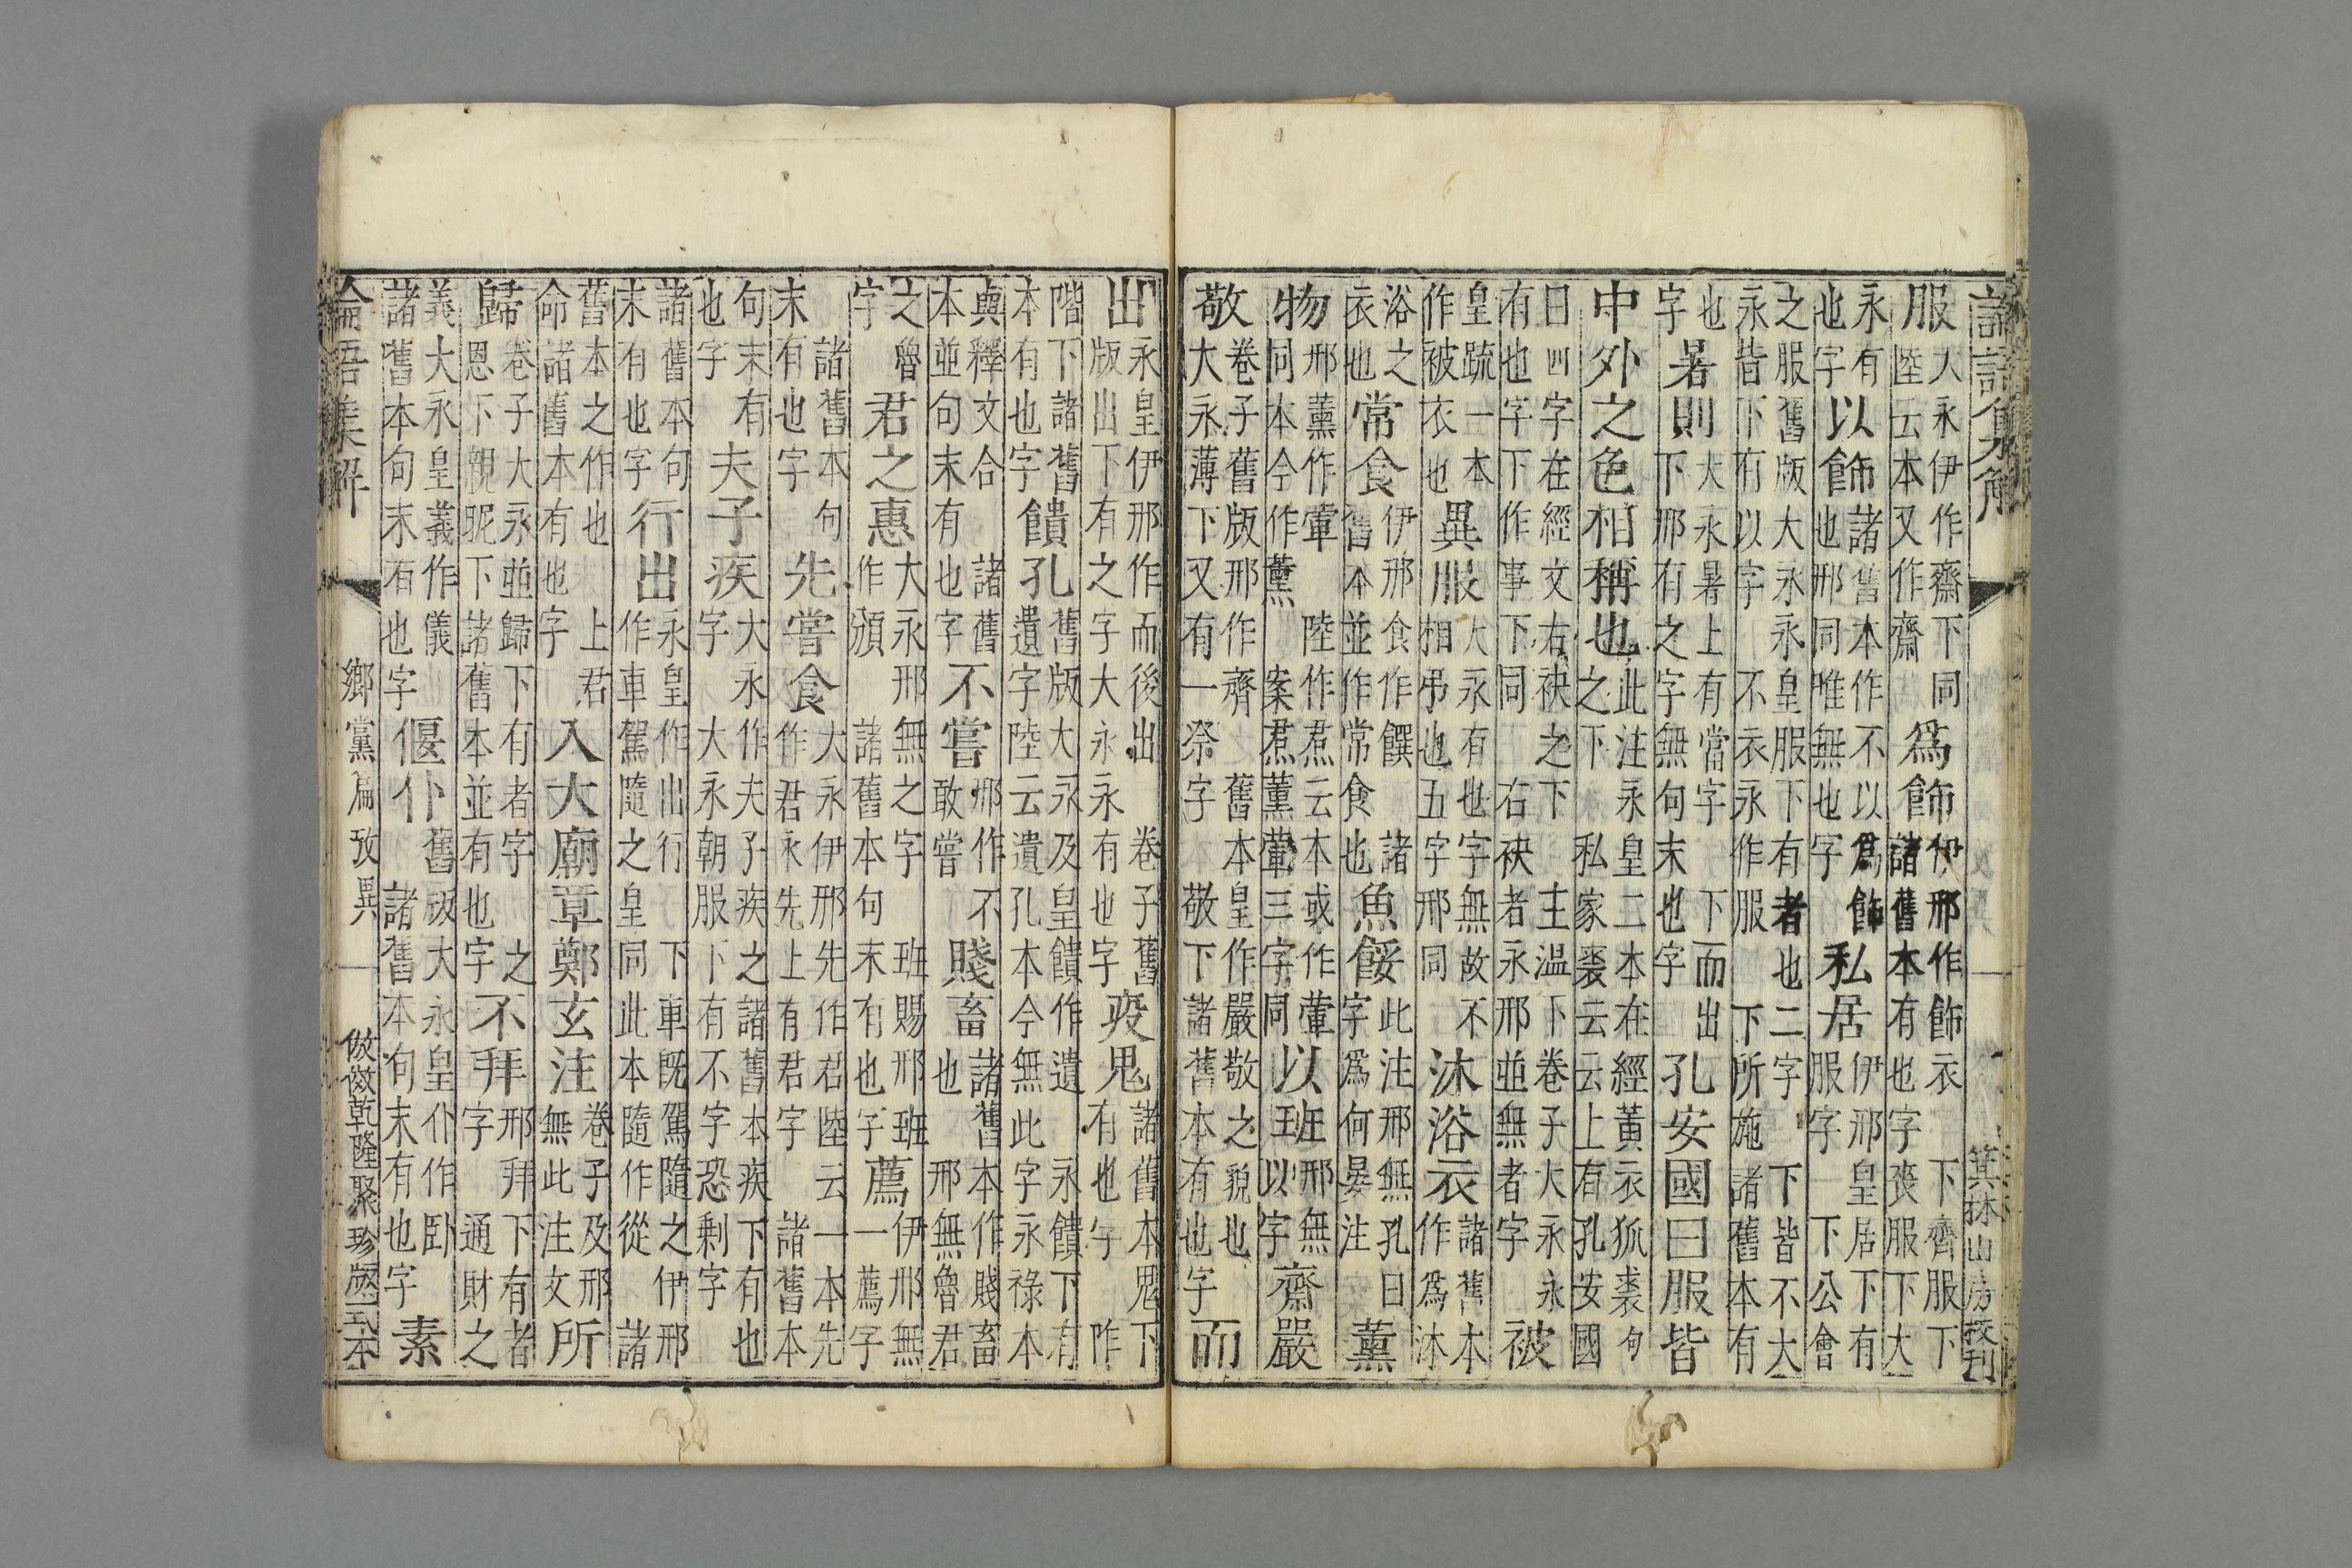 論語集解
箕林山房校刊
服大永伊作齋下同陸云本又作齋爲飾伊邢作飾衣諸舊本有也字下齊服下喪服下大
永有也字以飾諸舊本作不以爲飾也邢同唯無也字私居伊邢皇居下有服字下公會
之服舊版大永永皇服下有者也二字永皆下有以字不衣永作服下所施諸舊本有下皆不大
也字暑則大永暑上有當字下邢有之字無句末也字下而出孔安國曰服皆
中外之色相稱也此注永皇二本在經黃衣狐裘句之下私家裘云云上有孔安國
曰四字在經文右袂之下有也字下作事下同主温下卷子大永永右袂者永邢並無者字被
皇疏一本作被衣也異服大永有也字無故不相弔也五字邢同沐浴衣諸舊本作爲沐
浴之衣也常食伊邢食作饌舊本並作常食也諸魚餒此注邢無孔曰字爲何晏注薰
物邢薰作葷同本今作薰陸作焄云本或作葷案焄薰葷三字同以班邢無班以字齋嚴
敬卷子舊版邢作齊大永薄下又有一祭字舊本皇作嚴敬之貌也敬下諸舊本有也字而
出永皇伊邢作而後出版出下有之字大永永有也字卷子舊疫鬼諸舊本鬼下有也字阼
階下諸舊本有也字饋孔舊版大永及皇饋作遺遺字陸云遺孔本今無此字永饋下有永祿本
與釋文合本並句末有也字諸舊不嘗邢作不敢嘗賤畜諸舊本作賤畜也邢無魯君
之魯君之惠大永邢無之字字作頒諸舊本句末有也字班賜邢班薦伊邢無一薦字
諸舊本句末有也字先嘗食大永伊邢先作君陸云一本先作君永先上有君字諸舊本
句末有也字夫子疾大永作夫子疾之諸舊本疾下有也字大永朝服下有不字恐剩字
諸舊本句末有也字行出永皇作出行作車駕隨之皇同此本隨作從下車既駕隨之伊邢諸
舊本之作也命諸舊本有也字上君命入大廟章鄭玄注卷子及邢無此注文所
歸卷子大永並歸下有者字恩下親昵下諸舊本並有也字之不拜邢拜下有者字通財之
義大永皇義作儀諸舊本句末有也字偃仆舊版大永皇仆作卧諸舊本句末有也字素
論語集解
鄉黨篇攷異
一
倣倣乾隆聚珍版式本